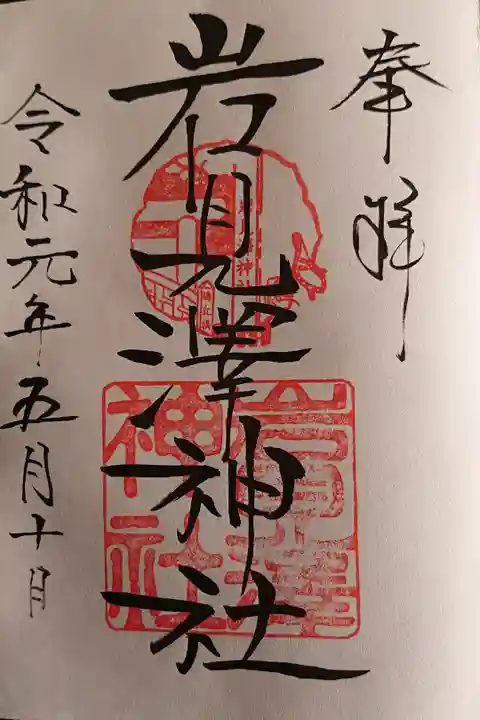 奉拝
岩見澤神社
令和元年五月十日
岩見澤神社